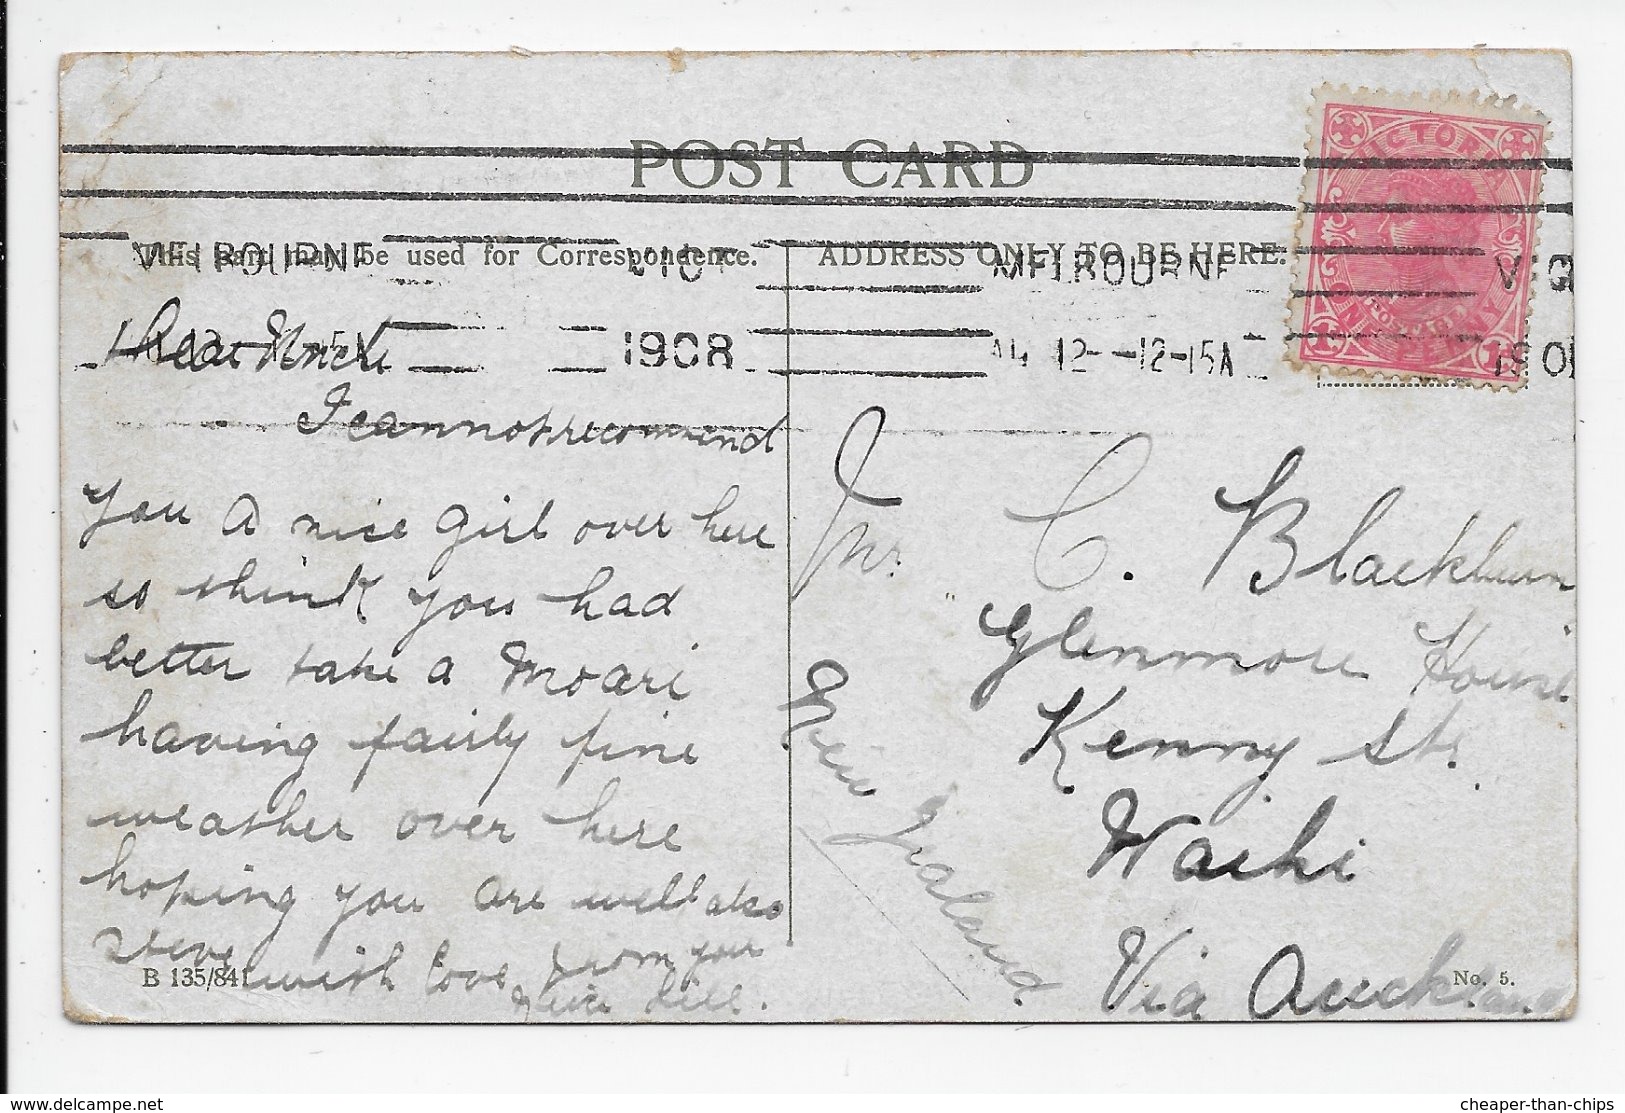 POST CARD
This part may be used for Correspondence.
ADDRESS ONLY TO BE HERE.
MELBOURNE VICT
1908
MELBOURNE VIC
12 - 12-15A
190
VICTORIA
ONE PENNY
POSTAGE
Dear Uncle
I cannot recommend
you a nice girl over here
so think you had
better take a Moari
having fairly fine
weather over here
hoping you are well also
Steve with love from your
Niece Lill.
Mr. C. Blackburn
Glenmore House
Kenny St.
Waihi
Via Auckland
New Zealand
B 135/841
No. 5.
www.delcampe.net
cheaper-than-chips